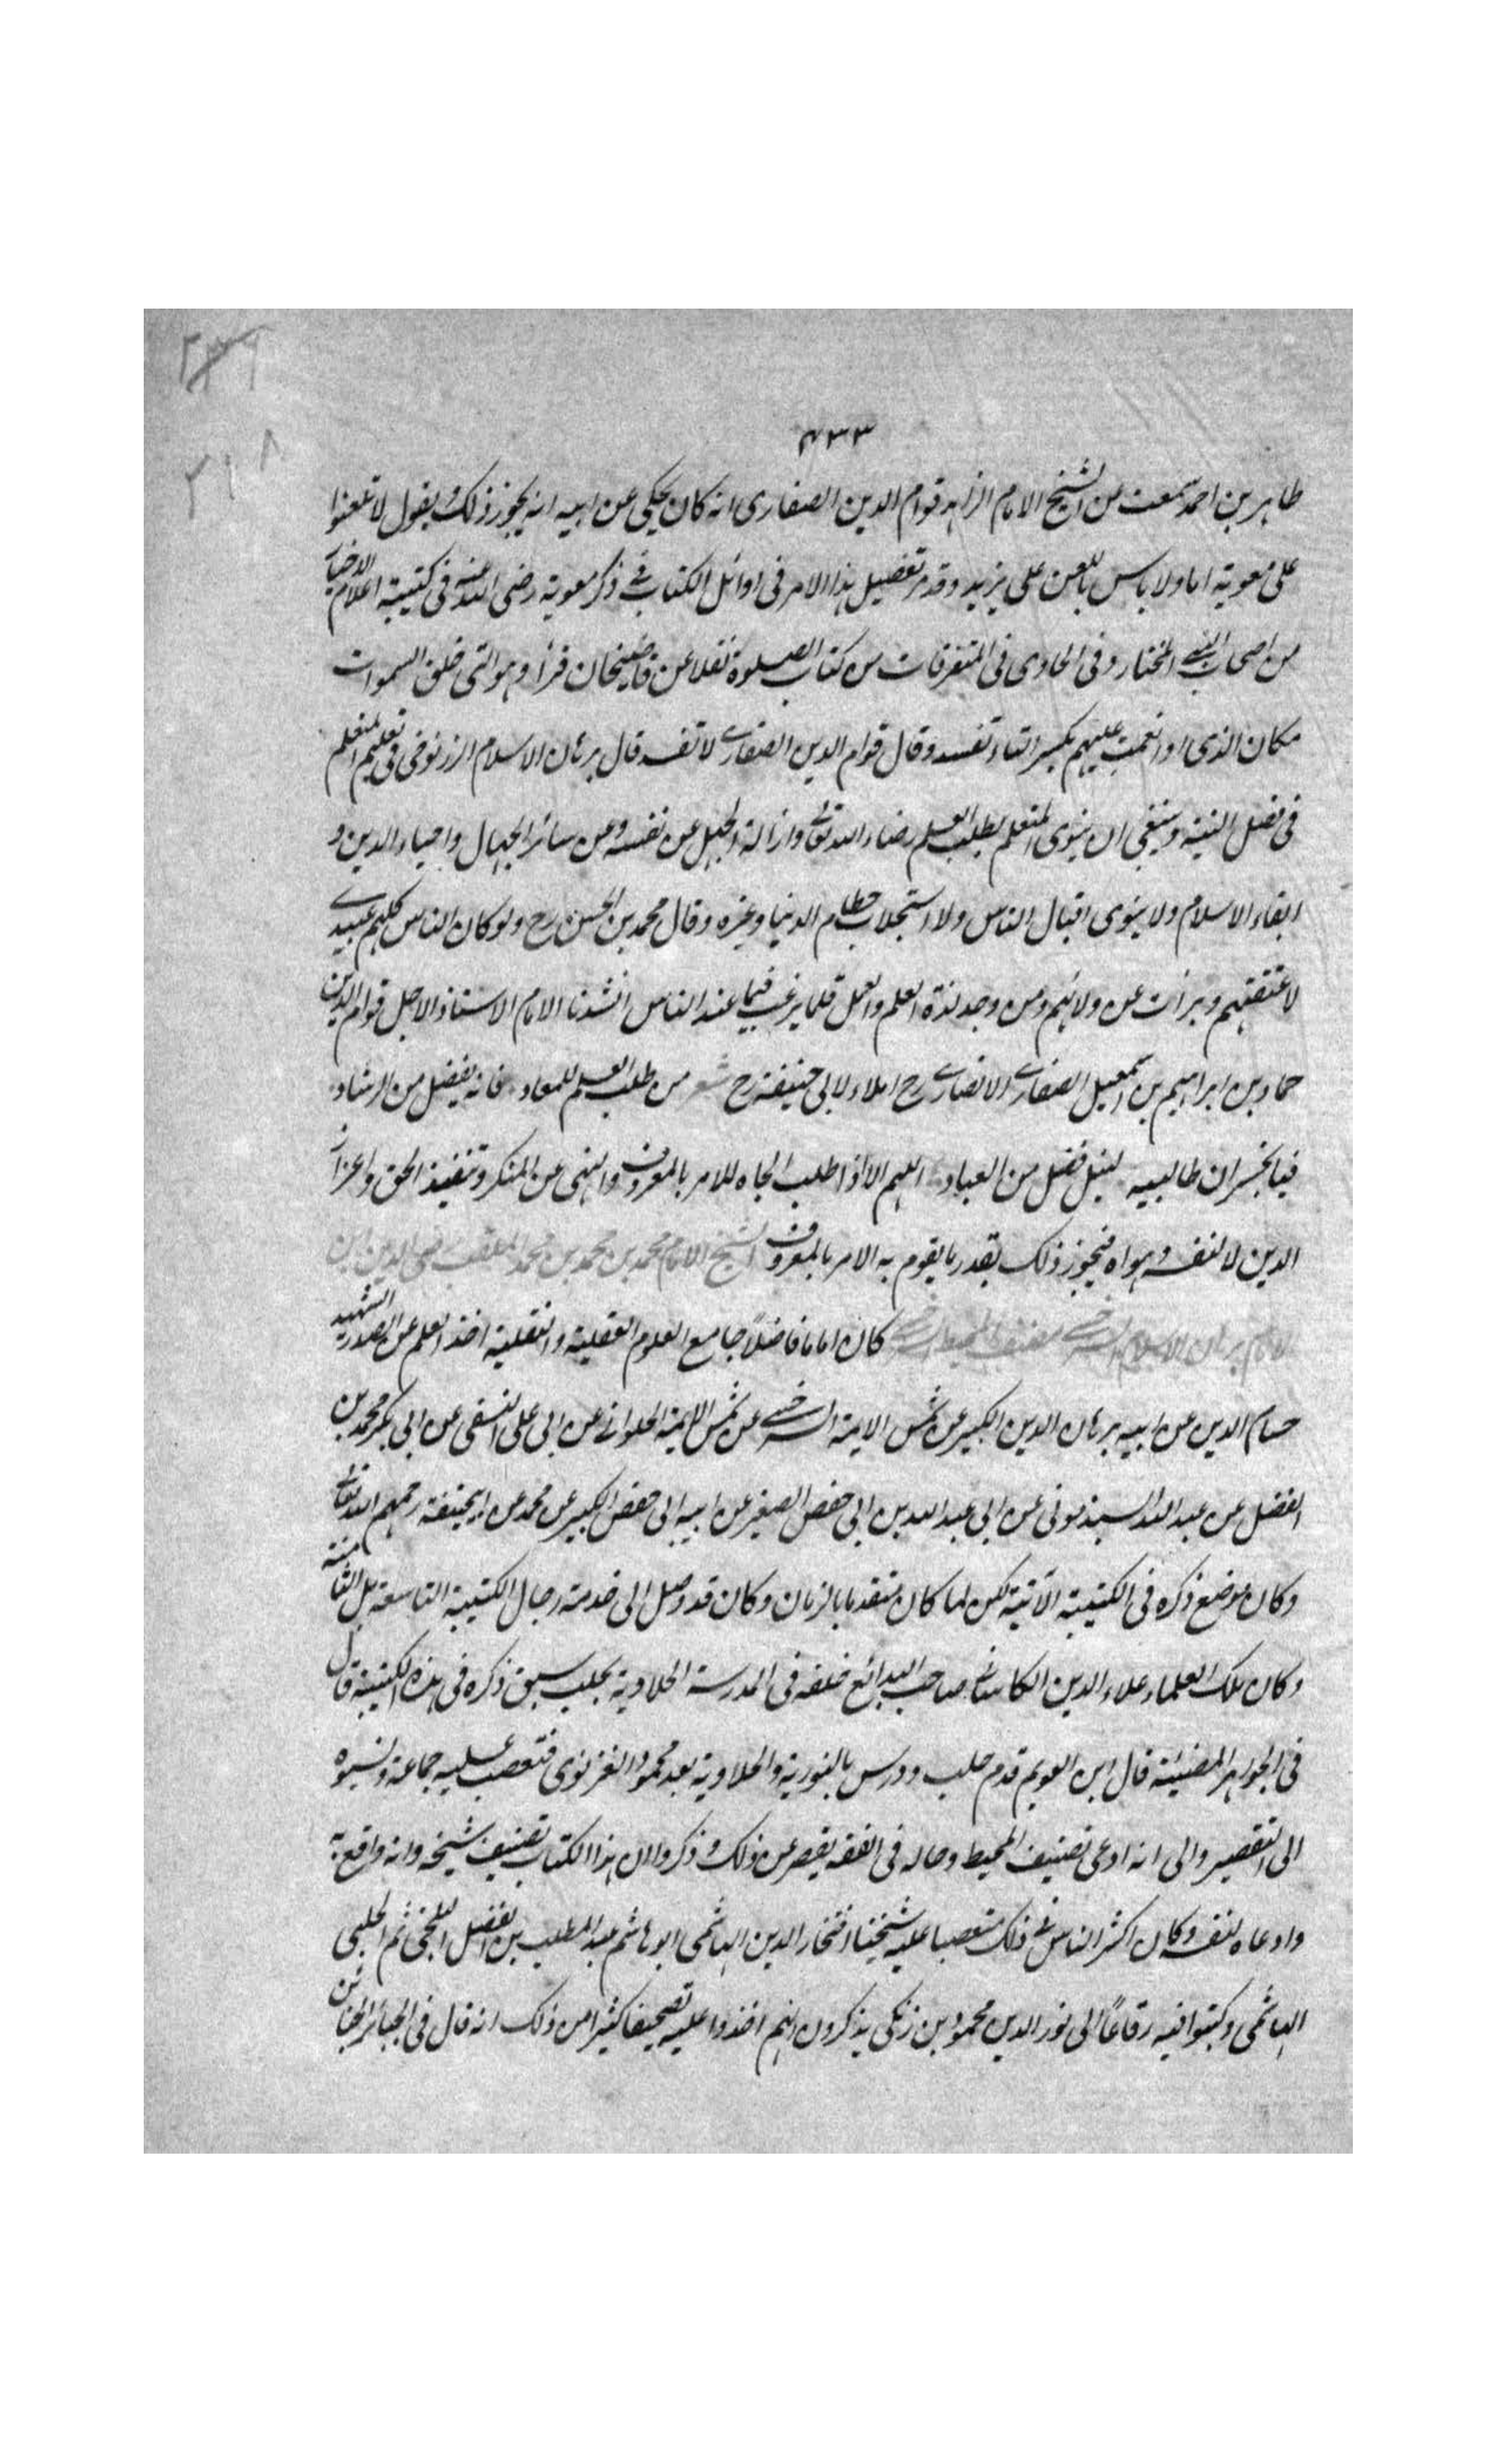 ٢٣٦
٢١٨
٤٣٣
طاهر بن احمد سمعت من الشيخ الامام الزاهد قوام الدين الصفارى انه كان يحكى عن ابيه انه يجوز ذلك ويقول لا تلعنوا
على معوية اما ولا باس باللعن على يزيد وقد مر تفصيل هذا الامر فى اوائل الكتاب فى ذكر معوية رضى الله عنه فى كتيبة اعلام الاخيار
من اصحاب النبى المختار وفى الحاوى فى المتفرقات من كتاب الصلوة نقلا عن قاضيخان قرأ وهو التى خلق السموات
مكان الذى او انعمت عليهم بكسر التاء تفسد وقال قوام الدين الصفارى لا تفسد قال برهان الاسلام الزرنوخى فى تعليم المتعلم
فى فصل النية وينبغى ان ينوى المتعلم بطلب العلم رضاء الله تعالى وازالة الجهل عن نفسه وعن سائر الجهال واحياء الدين و
ابقاء الاسلام ولا ينوى اقبال الناس ولا استجلاب حطام الدنيا وغيره وقال محمد بن الحسن رح ولو كان الناس كلهم عبيدى
لاعتقتهم وبرأت عن ولائهم ومن وجد لذة العلم والعمل قلما يرغب فيما عند الناس انشدنا الامام الاستاذ الاجل قوام الدين
حماد بن ابراهيم بن اسمعيل الصفارى الانصارى رح املاء لابى حنيفة رح شعر من طلب العلم للمعاد فانه بفضل من الرشاد
فيا لخسران طالبيه لنيل فضل من العباد اللهم الا اذا طلب الجاه للامر بالمعروف والنهى عن المنكر وتنفيذ الحق واعزاز
الدين لا لنفسه وهواه فيجوز ذلك بقدر ما يقوم به الامر بالمعروف الشيخ الامام محمد بن محمد بن محمد الملقب رضى الدين ابن
الامام برهان الاسلام السرخسى مصنف المحيط السرخسى كان اماما فاضلاً جامع العلوم العقلية والنقلية اخذ العلم عن الصدر الشهيد
حسام الدين عن ابيه برهان الدين الكبير عن شمس الايمة السرخسى عن شمس الايمة الحلوانى عن ابى على النسفى عن ابى بكر محمد بن
الفضل عن عبد الله السبذمونى عن ابى عبد الله بن ابى حفص الصغير عن ابيه ابى حفص الكبير عن محمد عن ابيحنيفة رحمهم الله تعالى
وكان موضع ذكره فى الكتيبة الآتية لكن لما كان متقدما بالزمان وكان قد وصل الى خدمة رجال الكتيبة التاسعة بل الثامنة
وكان ملك العلماء علاء الدين الكاسانى صاحب البدائع خلفه فى المدرسة الحلاوية بحلب سبق ذكره فى هذه الكتيبة قال
فى الجواهر المضيئة قال ابن العديم قدم حلب ودرس بالنورية والحلاوية بعد محمود الغزنوى فتعصب عليه جماعة ونسبوه
الى التقصير والى انه ادعى تصنيف المحيط وحاله فى الفقه يقصر عن ذلك وذكروا ان هذا الكتاب تصنيف شيخه وانه واقع به
وادعاه لنفسه وكان اكثر الناس فى ذلك متعصبا عليه شيخنا افتخار الدين الهاشمى ابو هاشم عبد المطلب بن الفضل البلخى ثم الحلبى
الهاشمى وكتبوا فيه رقاعًا الى نور الدين محمود بن زنكى يذكرون انهم اخذوا عليه تصحيفا كثيرا من ذلك انه قال فى الجبائر الخبائن